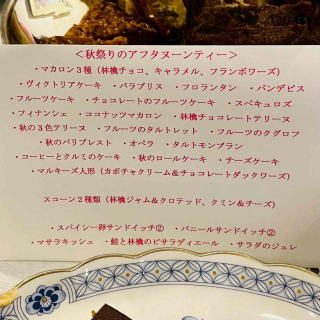 ＜秋祭りのアフタヌーンティー＞
・マカロン３種（林檎チョコ、キャラメル、フランボワーズ）
・ヴィクトリアケーキ　・パラブリス　・フロランタン　・パンデピス
・フルーツケーキ　・チョコレートのフルーツケーキ　・スペキュロズ
・フィナンシェ　・ココナッツマカロン　・林檎チョコレートテリーヌ
・秋の３色テリーヌ　・フルーツのタルトレット　・フルーツのクグロフ
・秋のパリブレスト　・オペラ　・タルトモンブラン
・コーヒーとクルミのケーキ　・秋のロールケーキ　・チーズケーキ
・マルキーズ人形（カボチャクリーム＆チョコレートダックワーズ）
スコーン２種類（林檎ジャム＆クロテッド、クミン＆チーズ）
・スパイシー卵サンドイッチ②　・バニールサンドイッチ②
・マサラキッシュ　・鮭と林檎のピサラディエール　・サラダのジュレ